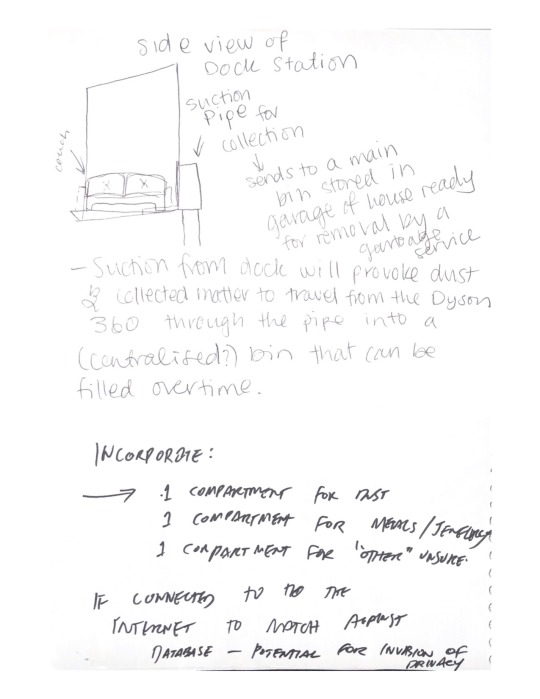 side view of
Dock Station
suction
pipe for
collection
couch
sends to a main
bin stored in
garage of house ready
for removal by a
garbage
service
- Suction from dock will provoke dust
& collected matter to travel from the Dyson
360 through the pipe into a
(centralised?) bin that can be
filled overtime.
INCORPORATE:
→ .1 COMPARTMENT FOR DUST
1 COMPARTMENT FOR METALS/JEWELLERY
1 COMPARTMENT FOR "OTHER" UNSURE.
IF CONNECTED TO THE
INTERNET TO MATCH AGAINST
DATABASE - POTENTIAL FOR INVASION OF
PRIVACY